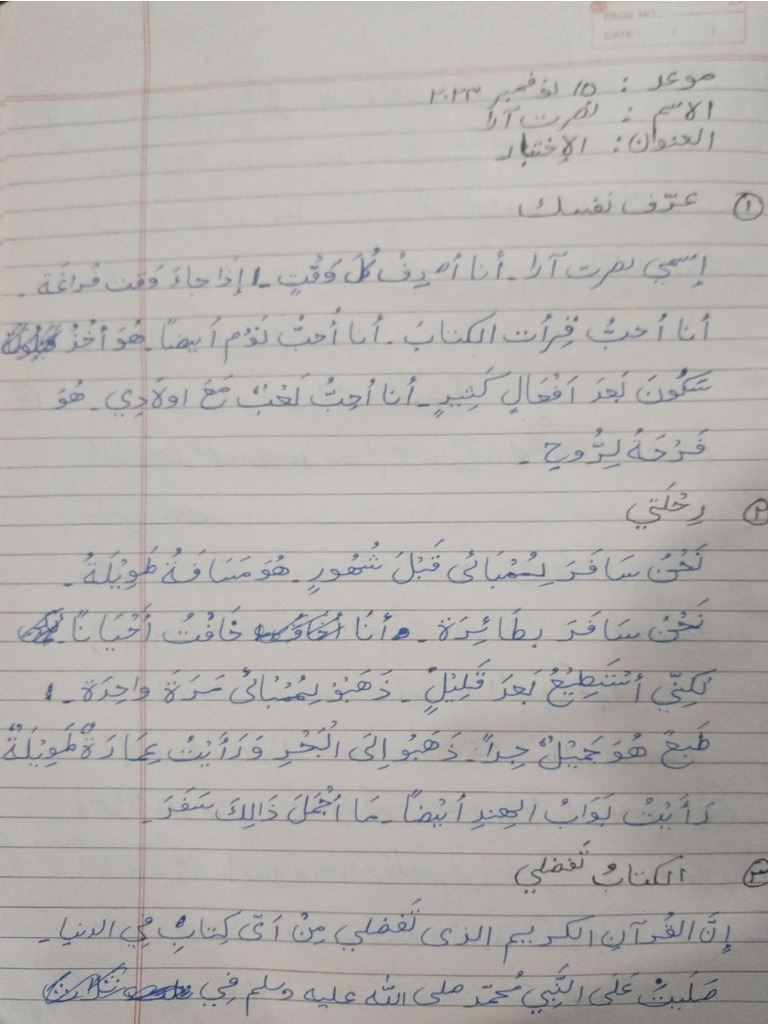 PAGE NO.
DATE: / /
موعد : ١٥ نوفمبر ٢٠٢٣
الاسم : نصرت آرا
العنوان: الإختبار
١ عرّف نفسك
إسمي نصرت آرا۔ أنا أُ كُلَّ وَقْتٍ۔ إِذَا جاءَ وَقت فُراغَة۔
أنا أُحبُّ قِرأت الكتابَ۔ أنا أُحبُّ نَوْم أَيضاً۔ هُوَ أخُذُ
سَكُونَ بَعدَ اَفْعَالٍ كَثِيرٍ۔ أنا اُحِبُّ لَعْبٌ مَعَ اولاَدِي۔ هُوَ
فَرْحَةُ لِرُّوحِ۔
٢ رِحْلَتي
نَحْنُ سَافَرَ لِمُمْبَائى قَبْلَ شُهُورٍ۔ هُوَ مَسَافَةُ طَوِيْلَةُ۔
نَحْنُ سَافَرَ بِطَائِرَة۔ أنَا خَافْتُ أَحْيَانًا۔
لَكِنّي أسْتَطِيْعُ بَعدَ قَلِيْلٍ۔ ذَهَبُوْ لِمُمْبَائى مَرَةَ واحِدَة۔
طَبعً هُوَ جَمِيْلٌ جِداً۔ ذَهَبُو اِلَى الْبَحْرِ وَرَأَيْتُ عِمَارَةٌ طَوِيْلَةٌ
رَأَيْتُ بَوَابُ الهِندِ أيْضاً۔ مَا اَجْمَلَ ذَالِكَ سَفَرَ۔
٣ الكتابُ تَفضلي
إِنَّ القُرآنِ الكريم الذى تَفضلي مِنْ اَىّ كِتابٍ فِي الدنيا۔
صَلَيتُ عَلَى النَّبِي مُحمّد صلى الله عليه وسلم فِي